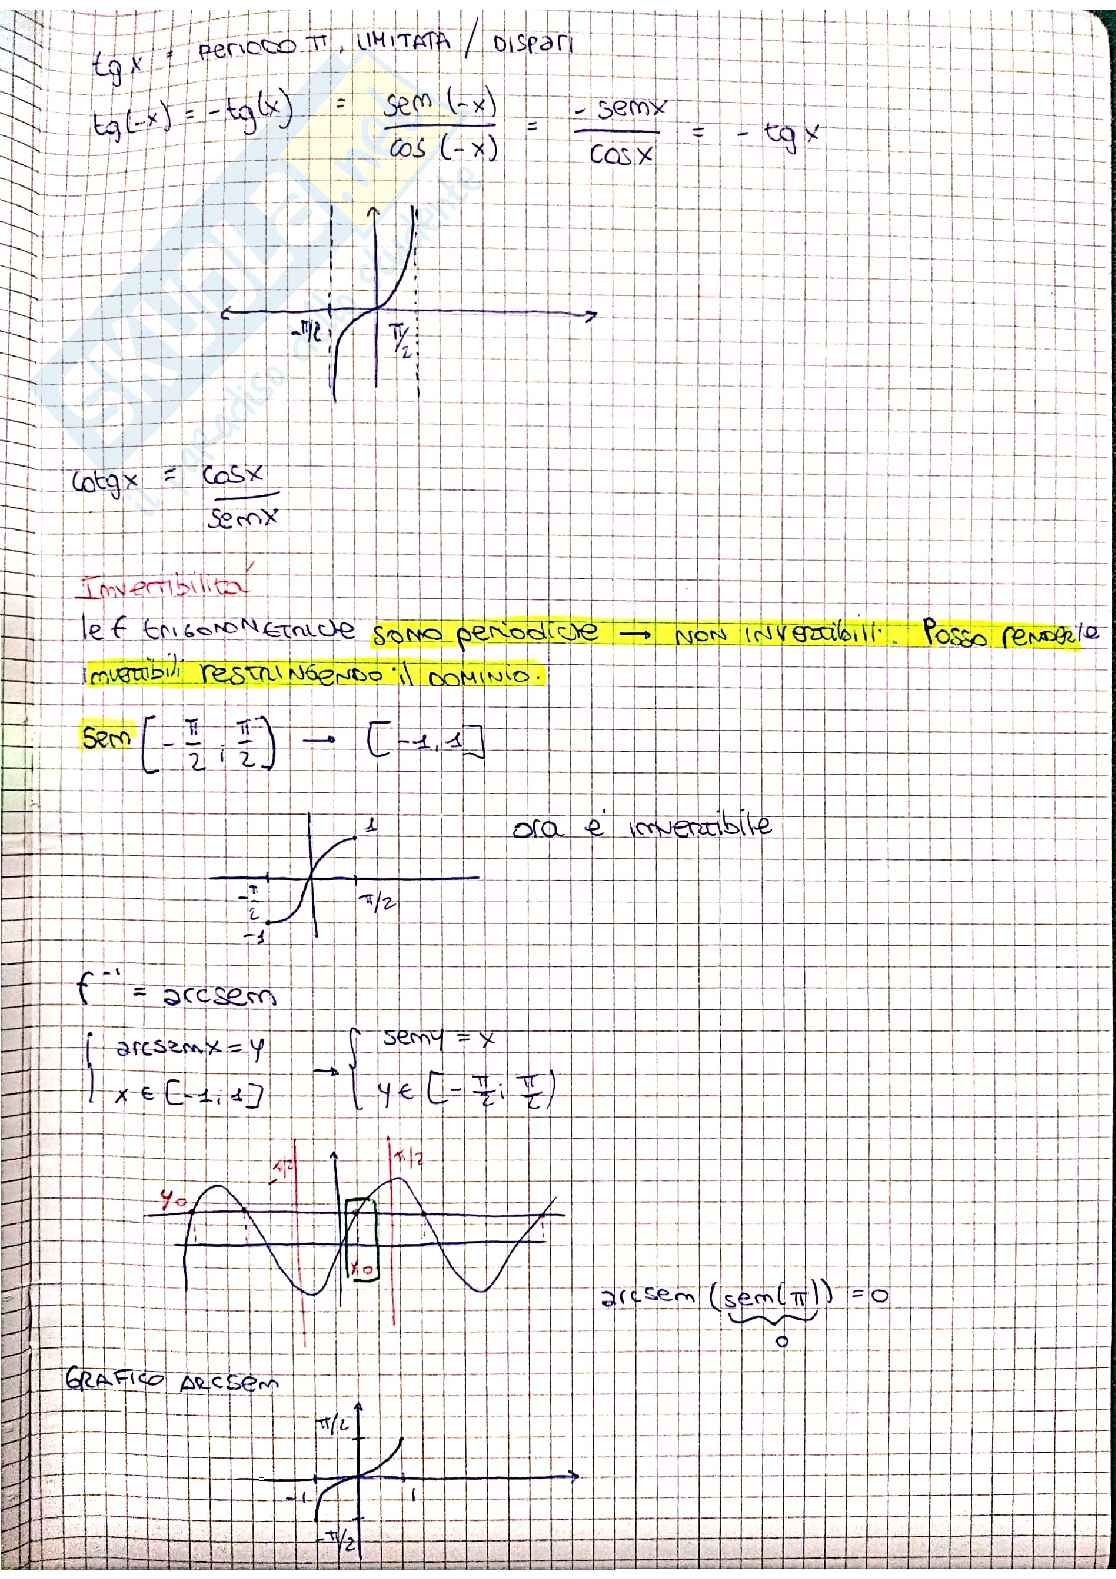 tg x = PERIODO π, LIMITATA / DISPARI
tg(-x) = -tg(x) = sen(-x)/cos(-x) = -senx/cosx = -tgx
-π/2 π/2
cotgx = cosx/senx
Invertibilità
le f trigonometriche sono periodiche → NON INVERTIBILI. Posso renderle
invertibili RESTRINGENDO il DOMINIO.
Sen [-π/2; π/2] → [-1, 1]
1 ora è invertibile
-π/2 π/2
-1
f⁻¹ = arcsen
{ arcsenx = y → { seny = x
x ∈ [-1; 1] y ∈ [-π/2; π/2]
-π/2 π/2
y0
x0
arcsen (sen(π)) = 0
0
GRAFICO ARCSEN
π/2
-1 1
-π/2
SKUOLA.net
il paradiso dello studente